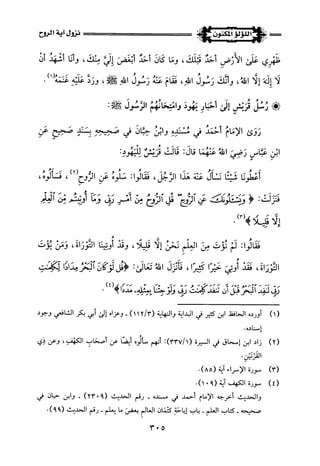 اللؤلؤ المكنون
نزول آية الروح
ظَهْرِي عَلَىٰ الأَرْضِ أَحَدٌ قَبْلَكَ، وَمَا كَانَ أَحَدٌ أَبْغَضَ إِلَيَّ مِنْكَ، وأَنَا أَشْهَدُ أَنْ
لَا إِلَهَ إِلَّا اللهُ، وأنَّكَ رَسُولُ اللهِ، فَقَامَ عَنْهُ رَسُولُ اللهِ ﷺ، وَرَدَّ عَلَيْهِ غَنَمَهُ(١).
* رُسُلُ قُرَيْشٍ إِلَىٰ أَحْبَارِ يَهُودَ وامْتِحَانُهُمُ الرَّسُولَ ﷺ:
رَوَى الإِمَامُ أَحْمَدُ فِي مُسْنَدِهِ وابْنُ حِبَّانَ فِي صَحِيحِهِ بِسَنَدٍ صَحِيحٍ عَنِ
ابْنِ عَبَّاسٍ رَضِيَ اللهُ عَنْهُمَا قَالَ: قَالَتْ قُرَيْشٌ لِلْيَهُودِ:
أَعْطُونَا شَيْئًا نَسْأَلُ عَنْهُ هَذَا الرَّجُلَ، فَقَالُوا: سَلُوهُ عَنِ الرُّوحِ(٢)، فَسَأَلُوهُ،
فَنَزَلَتْ: ﴿وَيَسْـَٔلُونَكَ عَنِ ٱلرُّوحِ قُلِ ٱلرُّوحُ مِنْ أَمْرِ رَبِّى وَمَآ أُوتِيتُم مِّنَ ٱلْعِلْمِ
إِلَّا قَلِيلًا﴾(٣).
فَقَالُوا: لَمْ نُؤْتَ مِنَ العِلْمِ نَحْنُ إِلَّا قَلِيلًا، وقَدْ أُوتِينَا التَّوْرَاةَ، وَمَنْ يُؤْتَ
التَّوْرَاةَ، فَقَدْ أُوتِيَ خَيْرًا كَثِيرًا، فَأَنْزَلَ اللهُ تَعَالَىٰ: ﴿قُل لَّوْ كَانَ ٱلْبَحْرُ مِدَادًا لِّكَلِمَٰتِ
رَبِّى لَنَفِدَ ٱلْبَحْرُ قَبْلَ أَن تَنفَدَ كَلِمَٰتُ رَبِّى وَلَوْ جِئْنَا بِمِثْلِهِۦ مَدَدًا﴾(٤).
(١) أورده الحافظ ابن كثير في البداية والنهاية (١١٢/٣) ـ وعزاه إلى أبي بكر الشافعي وجود
إسناده.
(٢) زاد ابن إسحاق في السيرة (٣٣٧/١): أنهم سألُوه أيضًا عن أصحَابِ الكَهْفِ، وعن ذِي
القَرْنَيْنِ.
(٣) سورة الإسراء آية (٨٥).
(٤) سورة الكهف آية (١٠٩).
والحديث أخرجه الإمام أحمد في مسنده ـ رقم الحديث (٢٣٠٩) ـ وابن حبان في
صحيحه ـ كتاب العلم ـ باب إباحَةِ كتْمَان العالِمِ بعضَ ما يعلم ـ رقم الحديث (٩٩).
٣٠٥